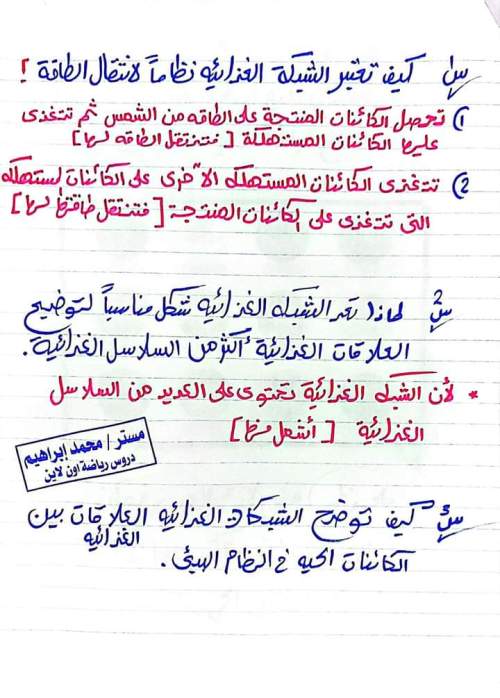 س١ كيف تعتبر الشبكة الغذائيه نظاماً لانتقال الطاقة ؟
١) تحصل الكائنات المنتجة على الطاقه من الشمس ثم تتغذى
عليها الكائنات المستهلكة [ فتنتقل الطاقه لها ]
٢) تتغذى الكائنات المستهلكه الأخرى على الكائنات المستهلكه
التى تتغذى على الكائنات المنتجة [ فتنتقل طاقتها لها ]
س٢ لماذا تعد الشبكه الغذائيه شكل مناسباً لتوضيح
العلاقات الغذائية أكثر من السلاسل الغذائية .
* لأن الشبكه الغذائية تحتوى على العديد من السلاسل
الغذائية [ أشمل منها ]
مستر / محمد ابراهيم
دروس رياضة اون لاين
س٣ كيف توضح الشبكات الغذائيه العلاقات بين
الغذائيه
الكائنات الحيه في النظام البيئى .